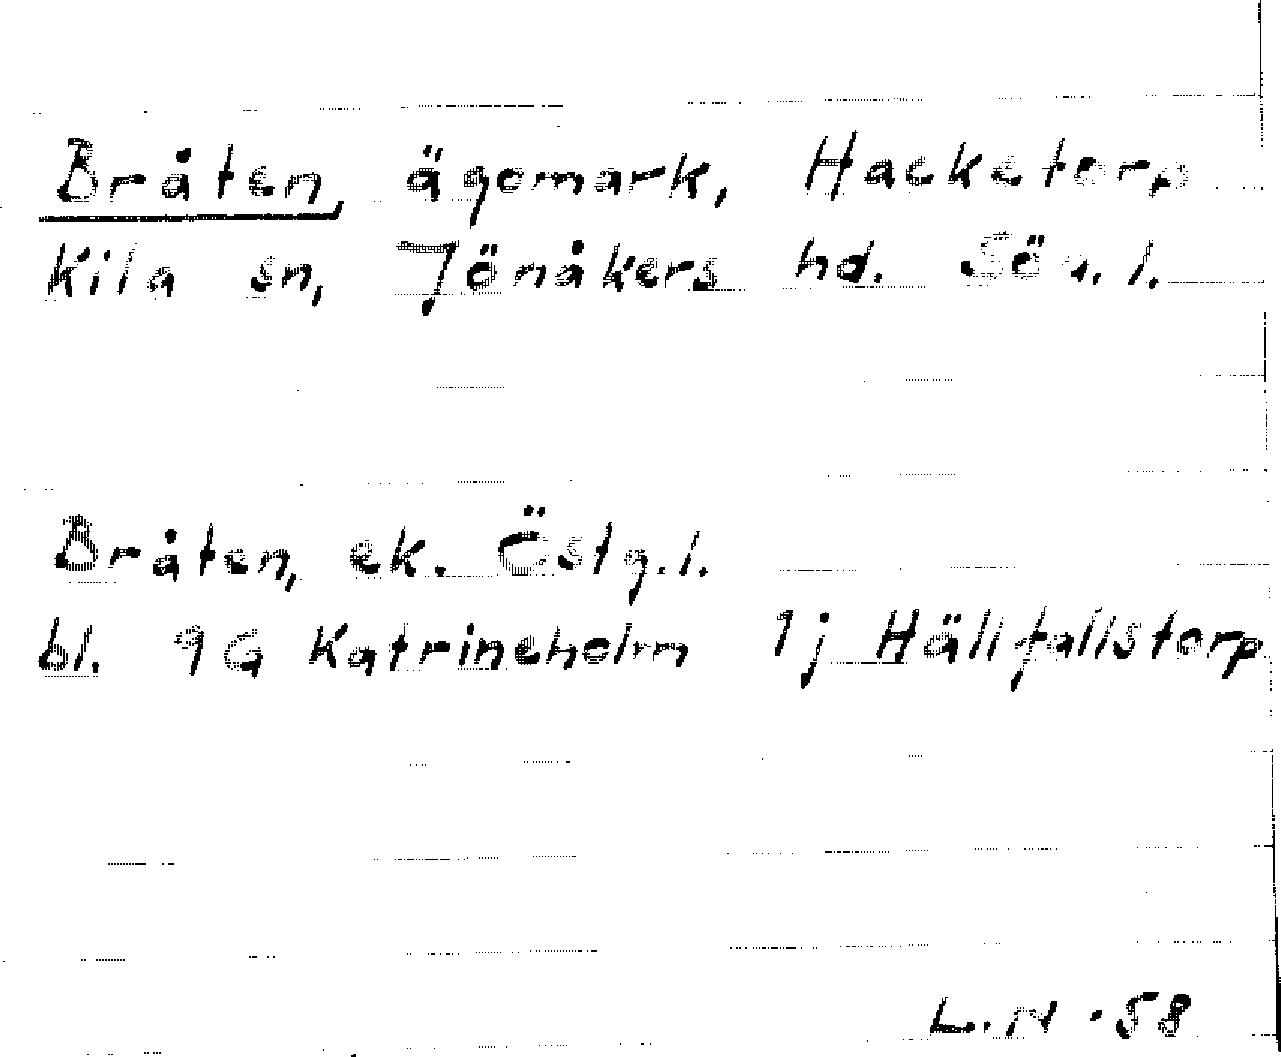 Bråten, ägomark, Hacketorp
Kila sn, Jönåkers hd. Sö u. l.
Bråten, ek. Östg.l.
bl. 9G Katrineholm 1j Hällfallstorp
L.N. 58